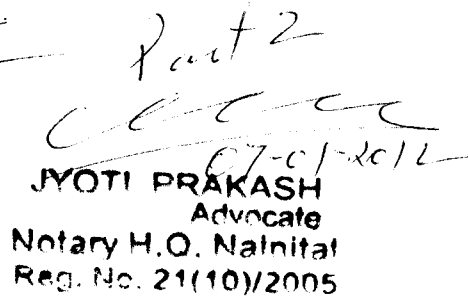 Part 2
07-01-2012
JYOTI PRAKASH
Advocate
Notary H.Q. Nainital
Reg. No. 21(10)/2005